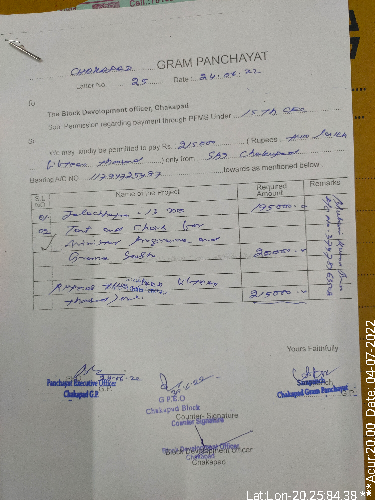 CHAKAPAD GRAM PANCHAYAT
Letter No. 25 Date: 24.06.22
To
The Block Development officer, Chakapad
Sub: Permission regarding payment through PFMS Under 15 Th CFC
Sir
We may kindly be permitted to pay Rs. 215000 (Rupees Two Lakh
fifteen thousand) only from SBI Chakapad
Bearing A/C NO 11734725737 towards as mentioned below
S.L NO Name of the Project Required Amount Remarks
01 Jalachhatra - 13 nos 195000.0
02 Tent and Chair for
Minister Programme and
Grama Sabha 20000.0
fifteen
thousand) only 215000.0
Yours Faithfully
24.06.22
Panchayat Executive Officer
Chakapad G.P.
G.P.E.O
Chakapad Block
Counter- Signature
Counter Signature
Sarapanch
Chakapad Gram Panchayat
Block Development Officer
Chakapad
Block Development Officer
Chakapad
Lat:Lon-20.25:84.38
***Acur.20.00, Date, 04-07-2022